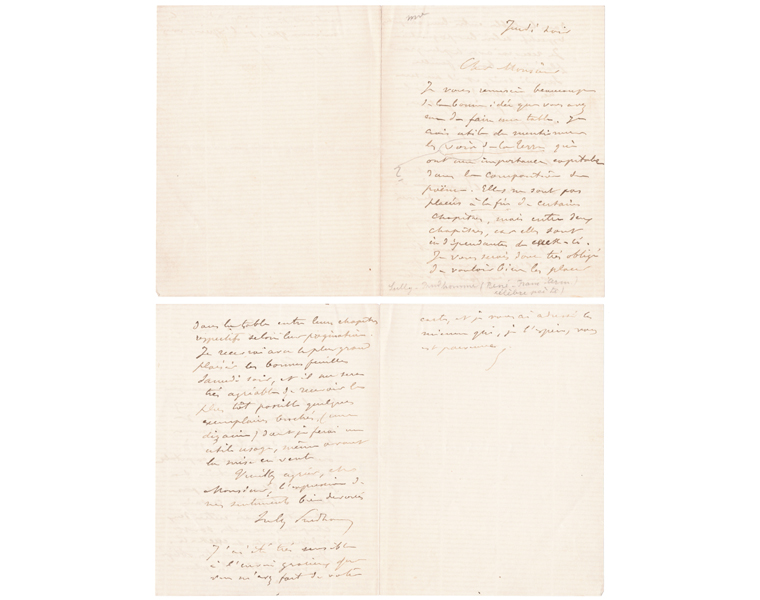 Jeudi soir
Cher Monsieur
Je vous remercie beaucoup
de la bonne idée que vous avez
eue de faire une table. Je
crois utile de mentionner
les voix de la terre qui
ont une importance capitale
dans la composition du
poème. Elles ne sont pas
placées à la fin de certains
chapitres, mais entre deux
chapitres, car elles sont
indépendantes de
Je vous serais donc très obligé
de vouloir bien les placer
Sully Prudhomme (René-Franç. Arm)
célèbre poète)
dans la table entre leurs chapitres
respectifs selon leur pagination.
Je recevrai avec le plus grand
plaisir les bonnes feuilles
Samedi soir, et il me sera
très agréable de recevoir le
plus tôt possible quelques
exemplaires brochés, (une
dizaine) dont je ferai un
utile usage, même avant
la mise en vente.
Veuillez agréer, cher
Monsieur, l'expression de
mes sentiments bien dévoués
Sully Prudhomme
J'ai été très sensible
à l'envoi gracieux que
vous m'avez fait de votre
carte, et je vous ai adressé la
mienne qui, je l'espère, vous
est parvenue.